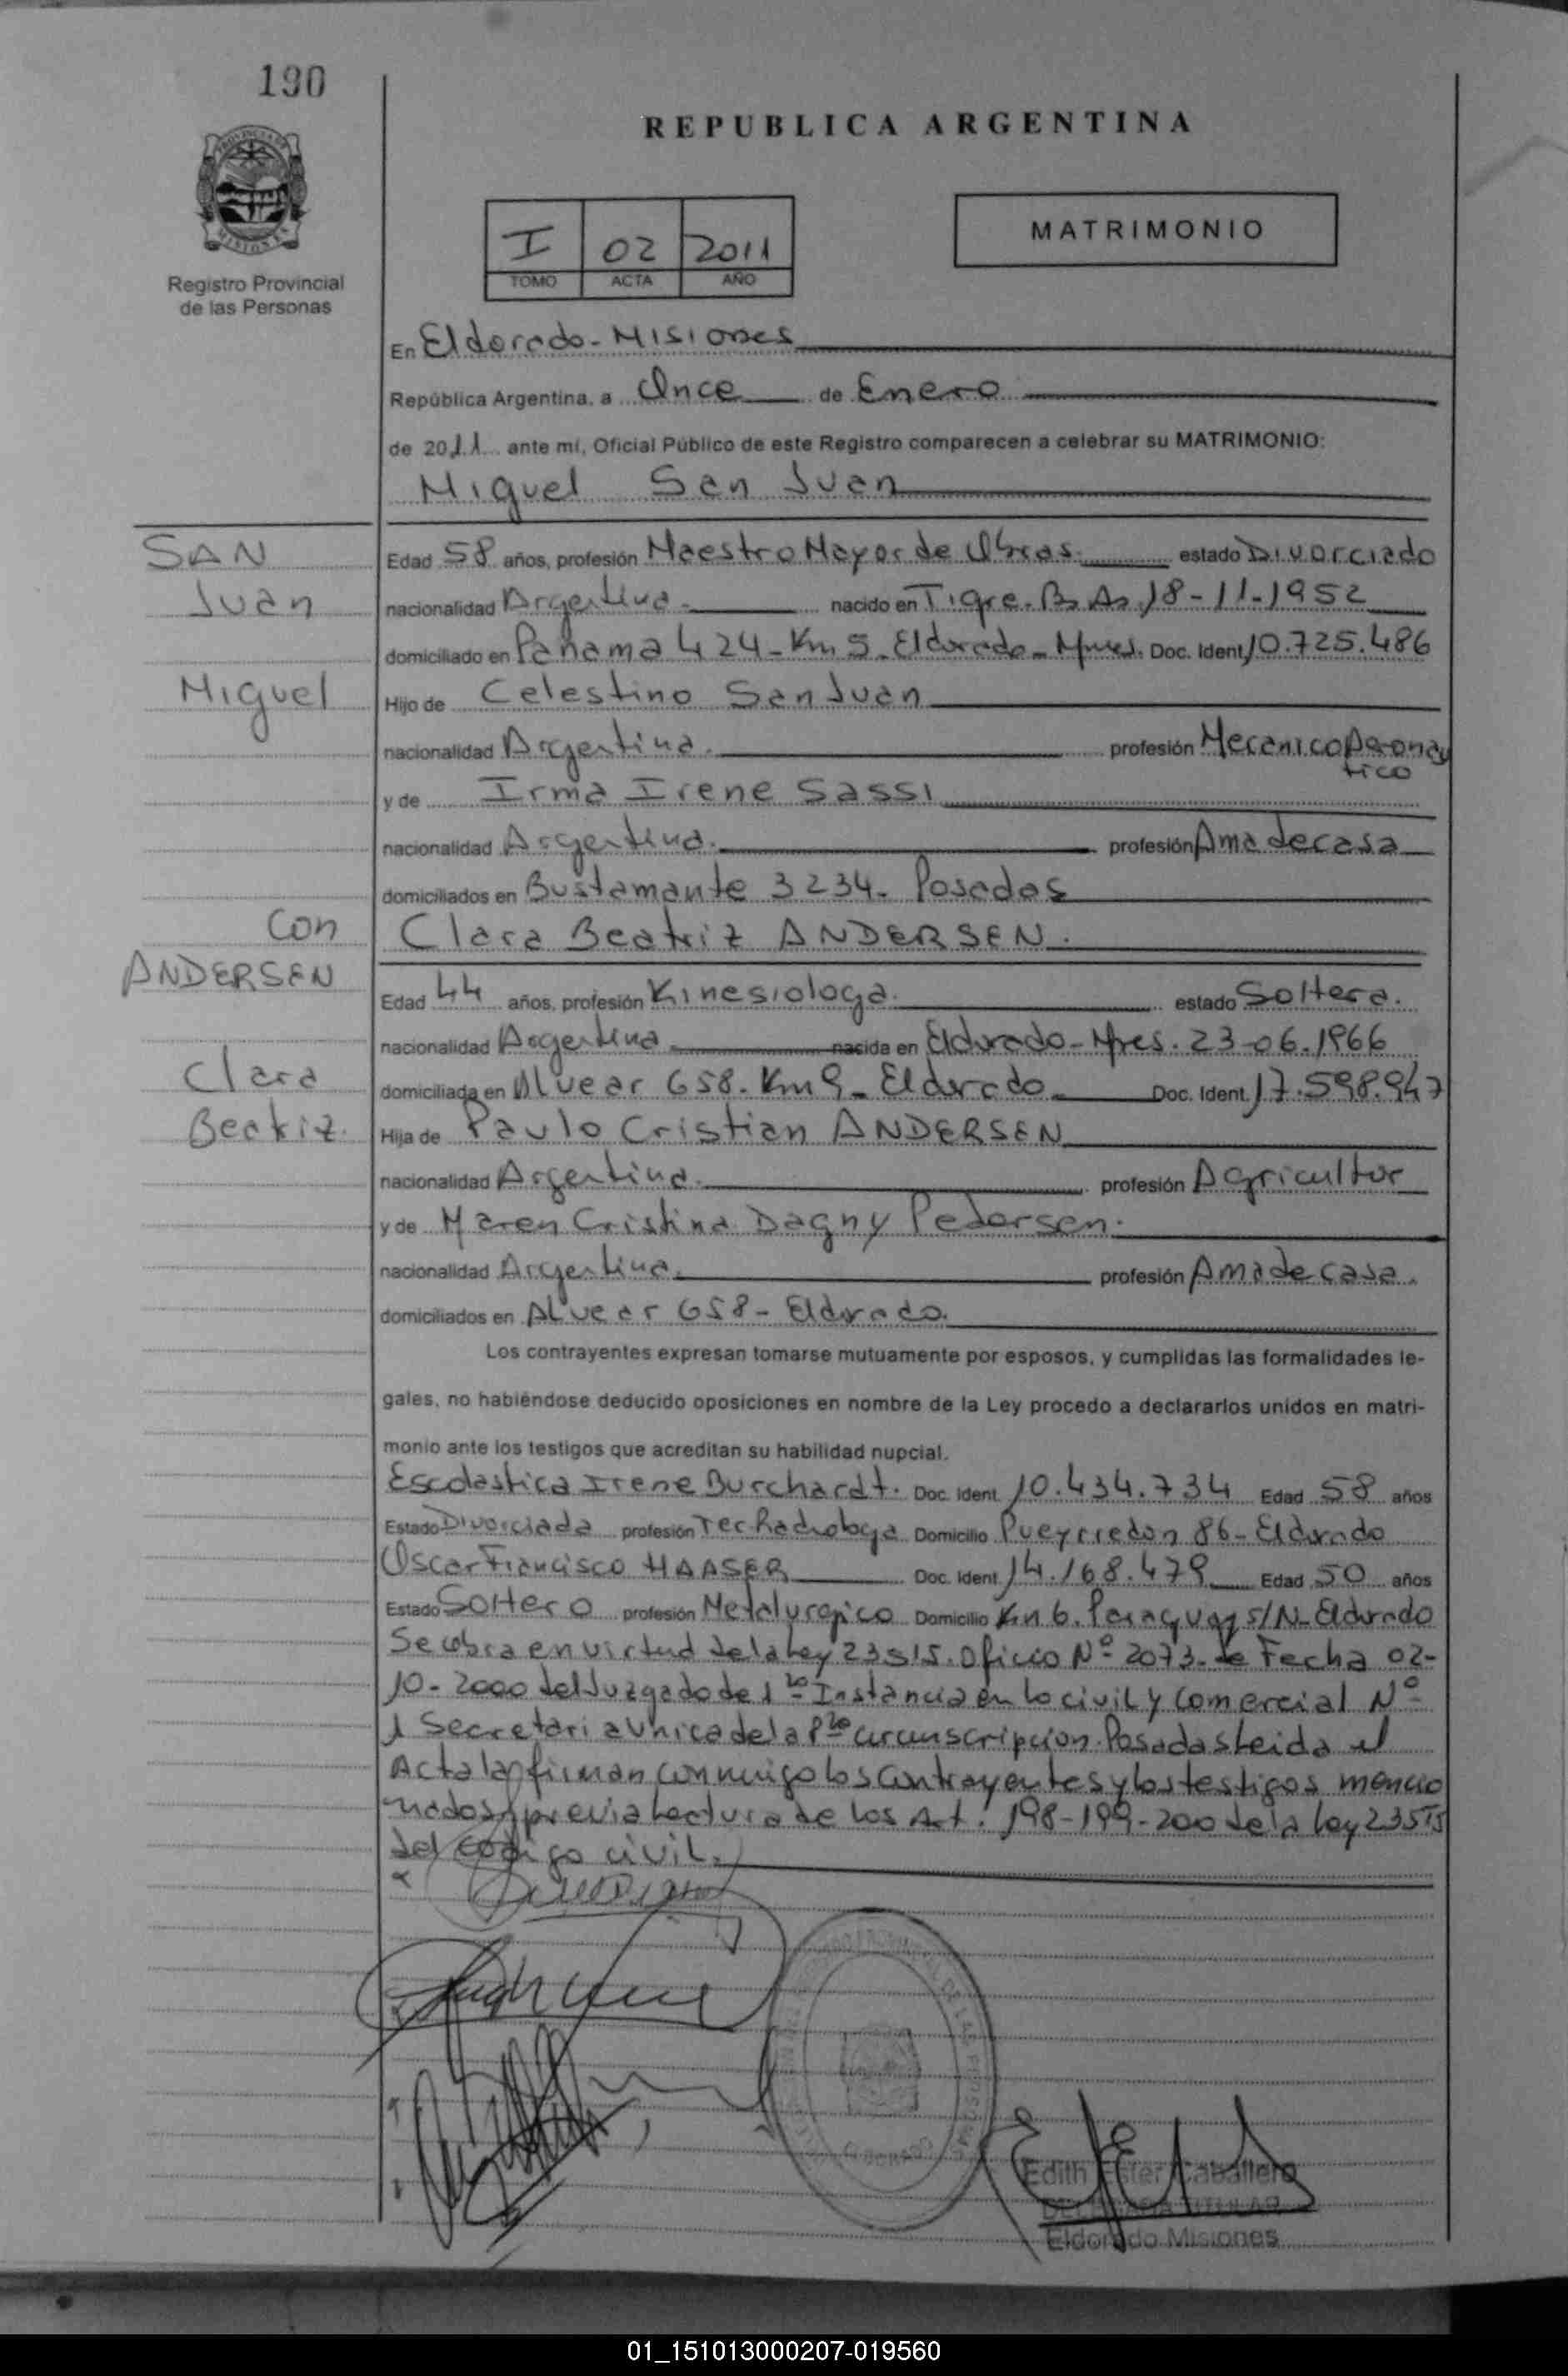 190
REPUBLICA ARGENTINA
I 02 2011
TOMO ACTA AÑO
MATRIMONIO
Registro Provincial
de las Personas
En Eldorado - Misiones
República Argentina, a Once de Enero
de 2011 ante mí, Oficial Público de este Registro comparecen a celebrar su MATRIMONIO:
Miguel San Juan
SAN
Juan
Miguel
Edad 58 años, profesión Maestro Mayor de Obras. estado Divorciado
nacionalidad Argentina. nacido en Tigre. Bs As 18-11-1952
domiciliado en Panama 424 - Km 5 - Eldorado - Mnes. Doc. Ident. 10.725.486
Hijo de Celestino San Juan
nacionalidad Argentina. profesión Mecanico Aeronau
tico
y de Irma Irene Sassi
nacionalidad Argentina. profesión Ama de casa
domiciliados en Bustamante 3234 - Posadas
con
ANDERSEN
Clara
Beatriz.
Clara Beatriz ANDERSEN.
Edad 44 años, profesión Kinesiologa. estado Soltera.
nacionalidad Argentina. nacida en Eldorado - Mnes. 23-06-1966
domiciliada en Alvear 658. Km 9 - Eldorado Doc. Ident. 17.598.947
Hija de Paulo Cristian ANDERSEN
nacionalidad Argentina. profesión Agricultor
y de Maren Cristina Dagny Pedersen.
nacionalidad Argentina. profesión Ama de casa.
domiciliados en Alvear 658 - Eldorado.
Los contrayentes expresan tomarse mutuamente por esposos, y cumplidas las formalidades le-
gales, no habiéndose deducido oposiciones en nombre de la Ley procedo a declararlos unidos en matri-
monio ante los testigos que acreditan su habilidad nupcial.
Escolastica Irene Burchardt. Doc. Ident. 10.434.734 Edad 58 años
Estado Divorciada profesión Tec. Radiologa Domicilio Pueyrredon 86 - Eldorado
Oscar Francisco HAASER Doc. Ident. 14.168.479 Edad 50 años
Estado Soltero profesión Metalurgico Domicilio Km 6. Paraguay s/N - Eldorado
Se labra en virtud de la Ley 23515. Oficio Nº 2073 - de Fecha 02-
10-2000 del Juzgado de 1ra Instancia en lo civil y Comercial Nº
1 Secretaria Unica de la 1ra circunscripcion. Posadas Leida el
Acta la firman conmigo los contrayentes y los testigos mencio
nados previa Lectura de los Art. 198-199-200 de la Ley 23515
del codigo civil.
Edith Ester Caballero
DELEGADA TITULAR
Eldorado Misiones
01_151013000207-019560